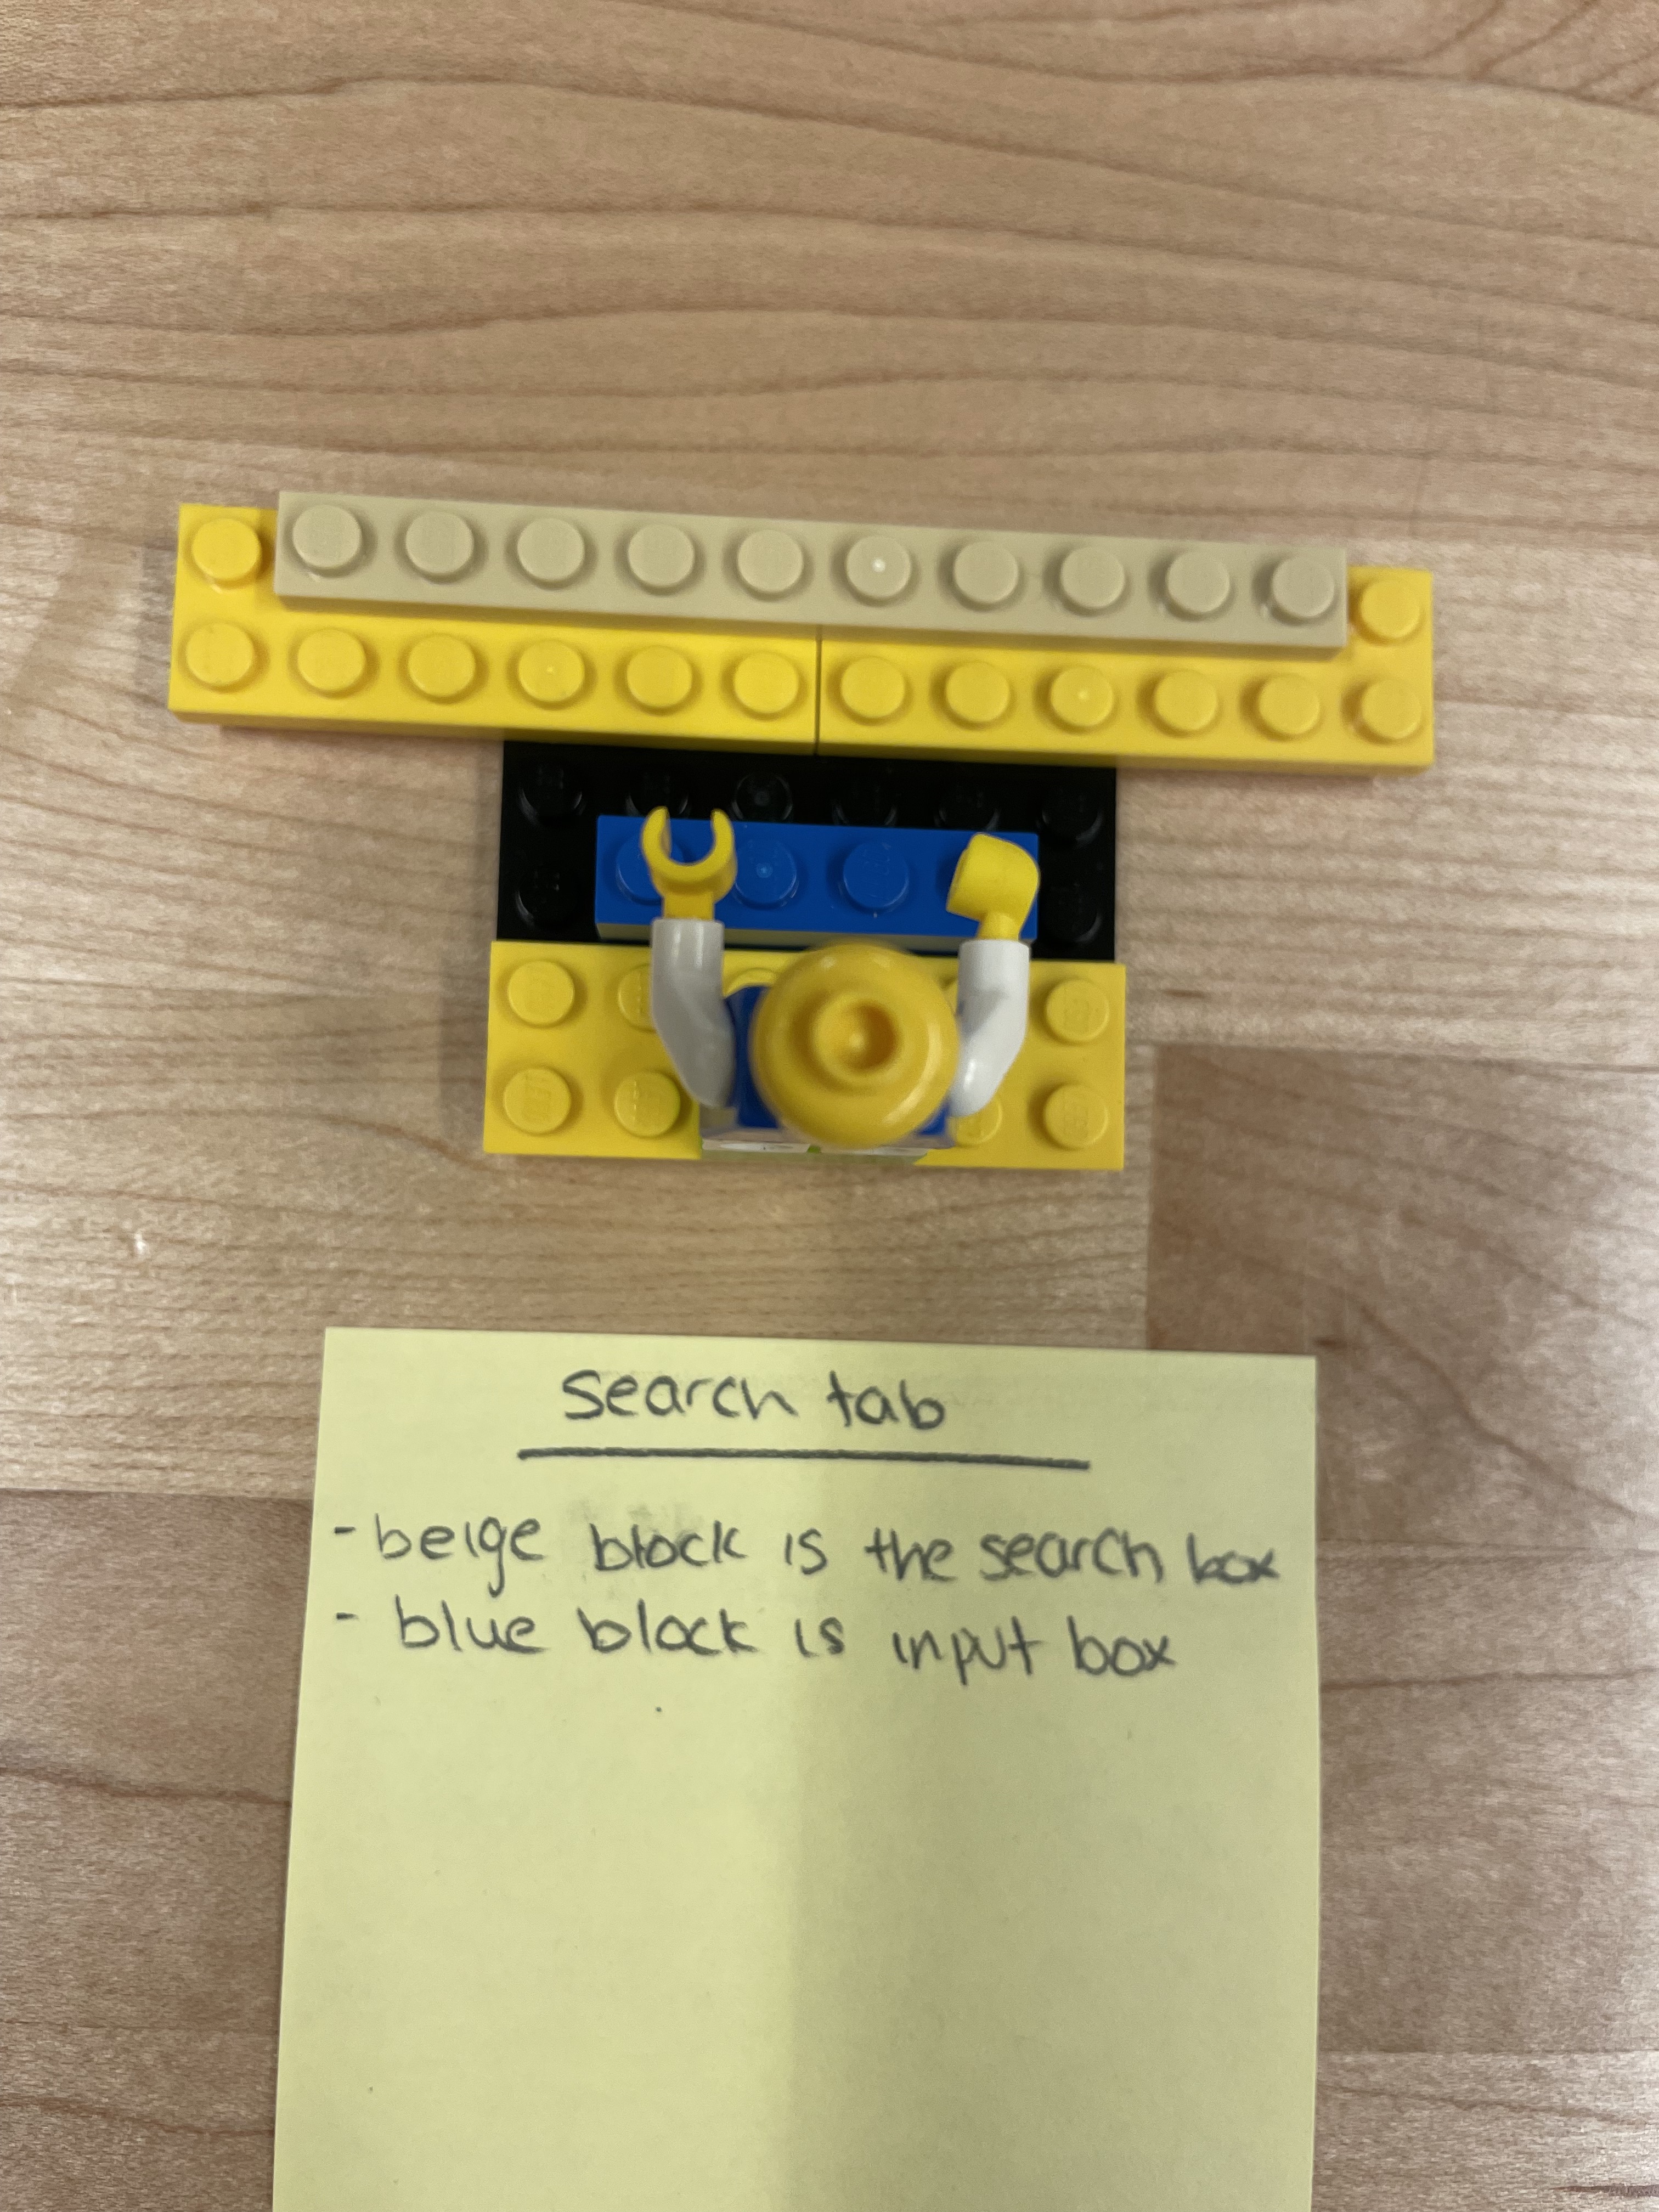 search tab
- beige block is the search box
- blue block is input box